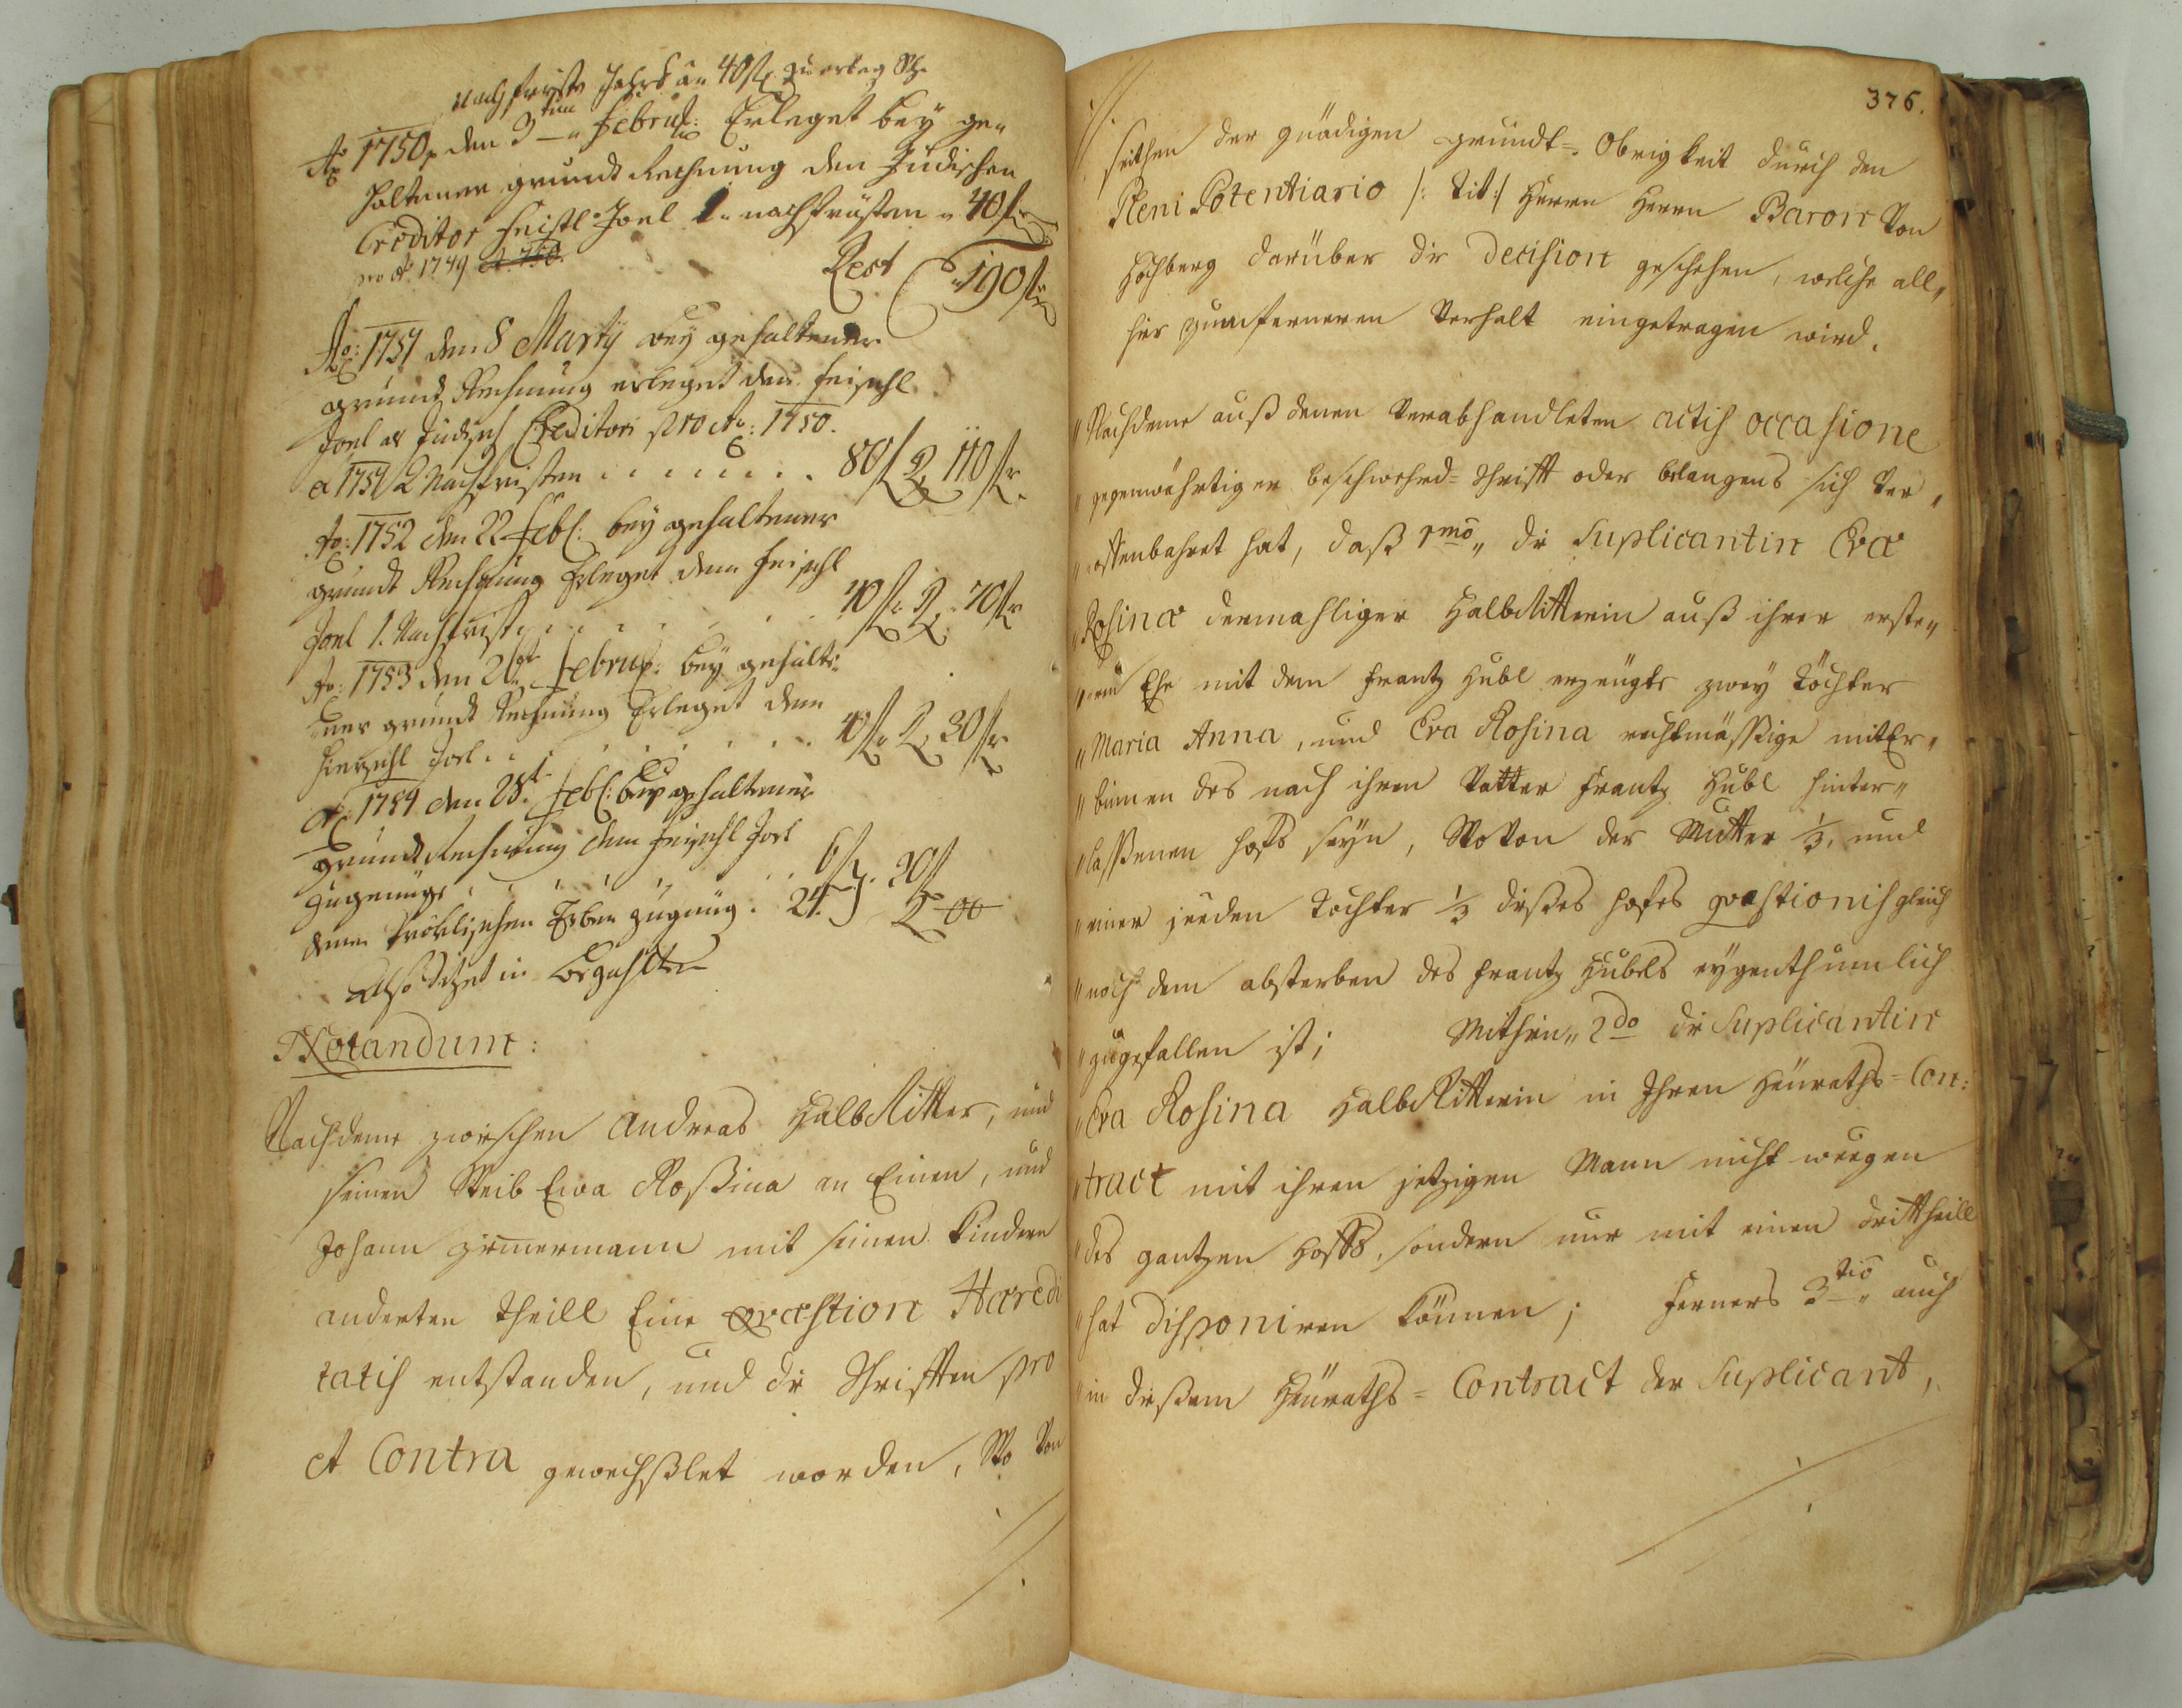 nach friste Jahrs à 40 f: zu erleg
Ao 1750 den 9ten Februar: Erleget bey ge„
haltener grundt Rechnung dem Jüdischen
Creditor Feistl Joel 1. nachfristen „ 40 f
pro Ao 1749
Rest 190 f
Ao: 1751 den 8 Martÿ bey gehaltener
grundt Rechnung erleget dem Feischl
Joel als Jüdisch Creditori pro Ao: 1750.
et 1751 2 Nachfristen . . . . . . . 80 f R 110 f
Ao: 1752 den 22 Febl: bey gehaltener
grundt Rechnung Erleget dem Feischl
Joel 1. Nachfrist . . . . . . 40 f R 70 f
Ao: 1753 den 26t Februar: bey gehalte„
ner grundt Rechnung Erleget dem
Joel . . . . . . . 40 f R 30 f
Ao: 1754 den 28t Febl: bey gehaltener
grundt Rechnung dem Feischl Joel
Zugenüge . . . . . . 6 f
denen Erben zugnüg . 24. 30 f
R 00
Also Bezahlt
Notandum:
Nachdeme zwischen Andreas HalbRitter, und
seinen Weib Eva Roßina an Einen, und
Johann Zimmermann mit seinen Kindern
anderten Theill Eine quæstion Hæredi
tatis entstanden, und die Schrifften pro
et Contra gewechßlet worden, Wo Von
376.
seithen der gnädigen grundt=Obrigkeit durch den
Pleni Potentiario /: Tit: / Herrn Herrn Baron Von
Hochberg darüber die Decision geschehen, welche all„
hier zum ferneren Verhalt eingetragen wird.
„Nachdeme auß denen Verabhandleten actis occasione
„gegenwährtiger beschwehrd=Schrifft oder belangens sich Ver„
„offenbahret hat, daß 1mo„ die Suplicantin Eva
„Rosina dermahliger HalbRitterin auß ihrer erste„
„ren Ehe mit dem Frantz Hübl erzeugte zwey Töchter
„Maria Anna, und Eva Rosina rechtmässige mitEr„
„binnen des nach ihrem Vatter Frantz Hübl hinter„
„lassenen hofs seyn, WoVon der Mutter 1/3, und
„einer jeeden Tochter 1/3 dießes hofes quæstionis gleich
„nach dem absterben des Frantz Hübels eygenthumlich
„zugefallen ist; Mithin„ 2do die Suplicantin
„Eva Rosina HalbRitterin in Ihren Heuraths=Con:
„tract mit ihren jetzigen Mann nicht weegen
„des gantzen Hoffs, sondern nur mit einen drittheill
„hat disponiren können; Ferners 3tio„ auch
„in dießem Heuraths=Contract der Suplicant,